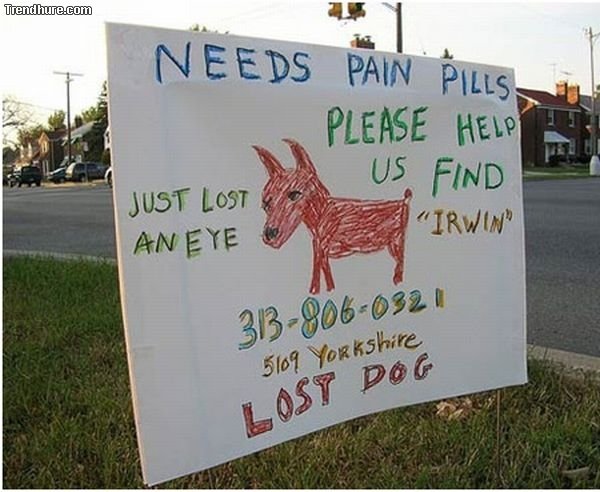 Trendhure.com
NEEDS PAIN PILLS
PLEASE HELP
US FIND
"IRWIN"
JUST LOST
AN EYE
313-806-0321
5109 YORKShire
LOST DOG